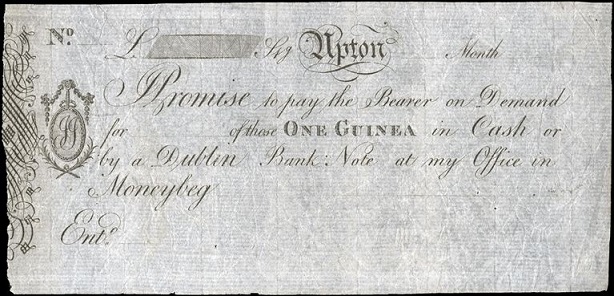 No. £ Stg Upton Month
I Promise to pay the Bearer on Demand
for of these ONE GUINEA in Cash or
by a Dublin Bank Note at my Office in
Moneybeg
Entd.